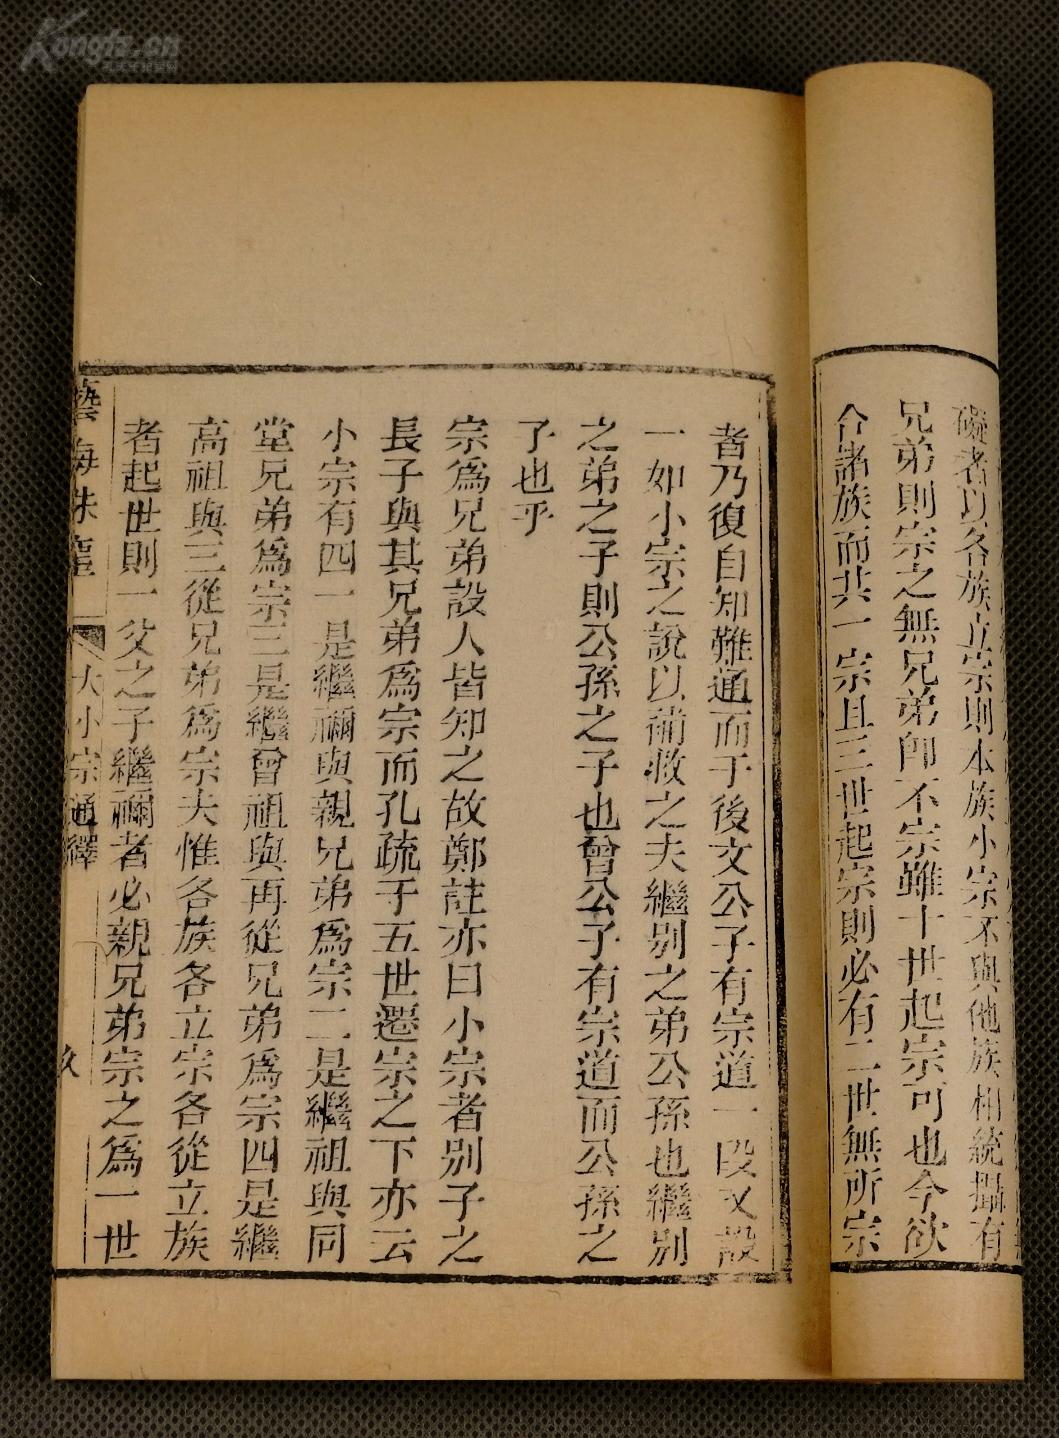 Kongfz.cn
礙者以各族立宗則本族小宗不與他族相統攝有
兄弟則宗之無兄弟卽不宗雖十世起宗可也今欲
合諸族而共一宗且三世起宗則必有二世無所宗
者乃復自知難通而于後文公子有宗道一段又設
一如小宗之說以補救之夫繼别之弟公孫也繼别
之弟之子則公孫之子也曾公子有宗道而公孫之
子也乎
宗爲兄弟設人皆知之故鄭註亦曰小宗者别子之
長子與其兄弟爲宗而孔疏于五世遷宗之下亦云
小宗有四一是繼禰與親兄弟爲宗二是繼祖與同
堂兄弟爲宗三是繼曾祖與再從兄弟爲宗四是繼
高祖與三從兄弟爲宗夫惟各族各立宗各從立族
者起世則一父之子繼禰者必親兄弟宗之爲一世
藝海珠塵 大小宗通繹